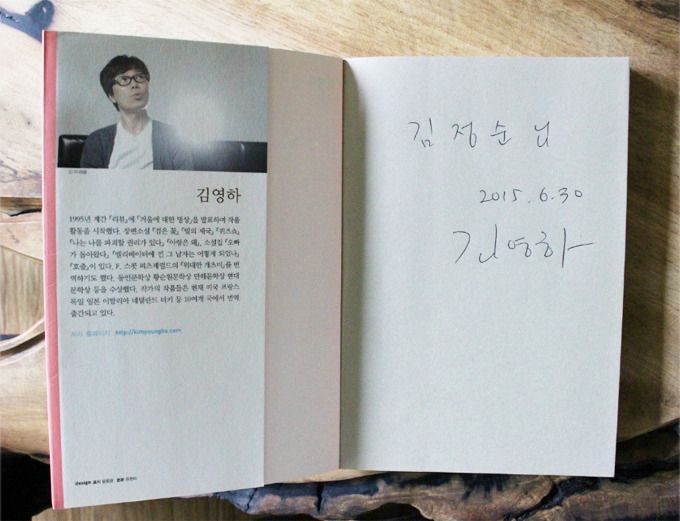 김영하
1995년 계간 『리뷰』에 「거울에 대한 명상」을 발표하며 작품
활동을 시작했다. 장편소설 『검은 꽃』 『빛의 제국』 『퀴즈쇼』
『나는 나를 파괴할 권리가 있다』 『아랑은 왜』, 소설집 『오빠
가 돌아왔다』 『엘리베이터에 낀 그 남자는 어떻게 되었나』
『호출』이 있다. F. 스콧 피츠제럴드의 『위대한 개츠비』를 번
역하기도 했다. 동인문학상 황순원문학상 만해문학상 현대
문학상 등을 수상했다. 작가의 작품들은 현재 미국 프랑스
독일 일본 이탈리아 네덜란드 터키 등 10여개 국에서 번역
출간되고 있다.
저자 홈페이지 http://kimyoungha.com
design 표지 본문
김정순 님
2015. 6. 30
김영하